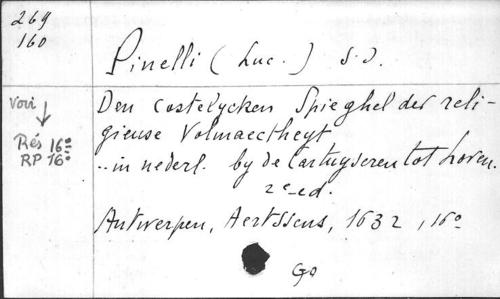 269
160
Pinelli (Luc.) S.J.
Voir ↓
Den costelycken Spieghel der reli-
gieuse Volmaectheyt
Rés 16º
RP 16º
.. in nederl. by de Cartuyseren tot Loven.
2e ed.
Antwerpen, Aertssens, 1632, 16º
Go